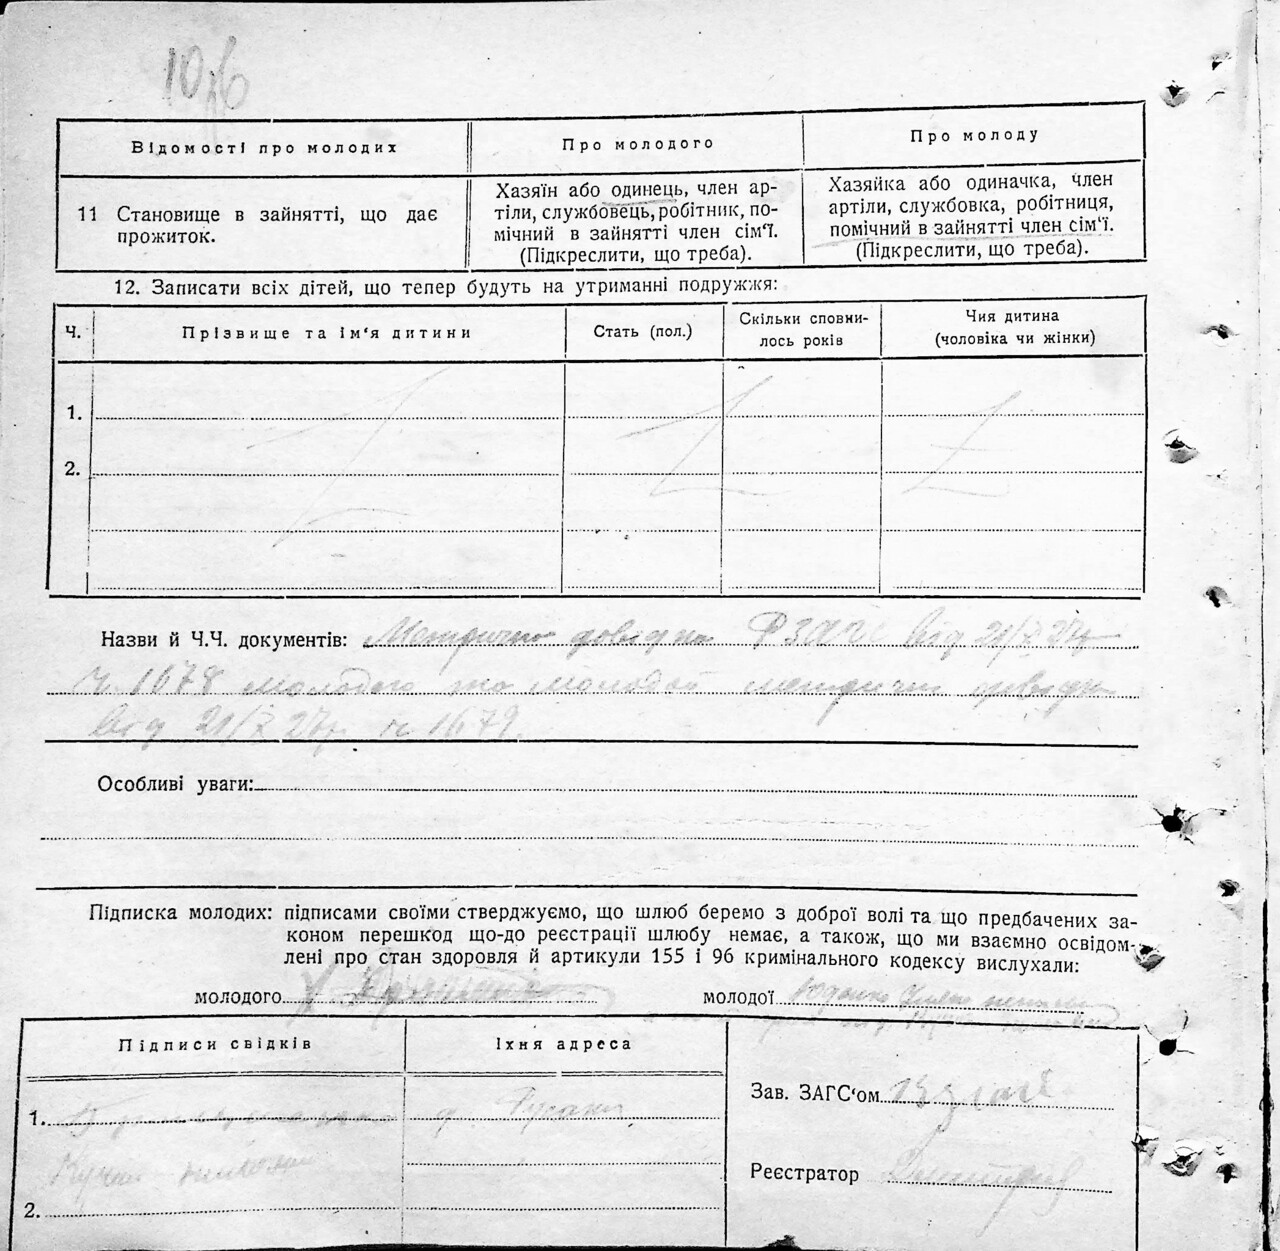 Відомості про молодих
Про молодого
Про молоду
11 Становище в зайнятті, що дає
прожиток.
Хазяїн або одинець, член ар-
тіли, службовець, робітник, по-
мічний в зайнятті член сім'ї.
(Підкреслити, що треба).
Хазяйка або одиначка, член
артіли, службовка, робітниця,
помічний в зайнятті член сім'ї.
(Підкреслити, що треба).
12. Записати всіх дітей, що тепер будуть на утриманні подружжя:
Ч.
Прізвище та ім'я дитини
Стать (пол.)
Скільки сповни-
лось років
Чия дитина
(чоловіка чи жінки)
1.
2.
Назви й Ч.Ч. документів: Метрична довідка РЗАГС від 21/X 27р
ч. 1678 молодого та молодої метричн довідк
від 21/X 27р. ч 1679.
Особливі уваги:
Підписка молодих: підписами своїми стверджуємо, що шлюб беремо з доброї волі та що предбачених за-
коном перешкод що-до реєстрації шлюбу немає, а також, що ми взаємно освідом-
лені про стан здоровля й артикули 155 і 96 кримінального кодексу вислухали:
молодого
молодої
Підписи свідків
Їхня адреса
1.
2.
Зав. ЗАГС'ом
Реєстратор